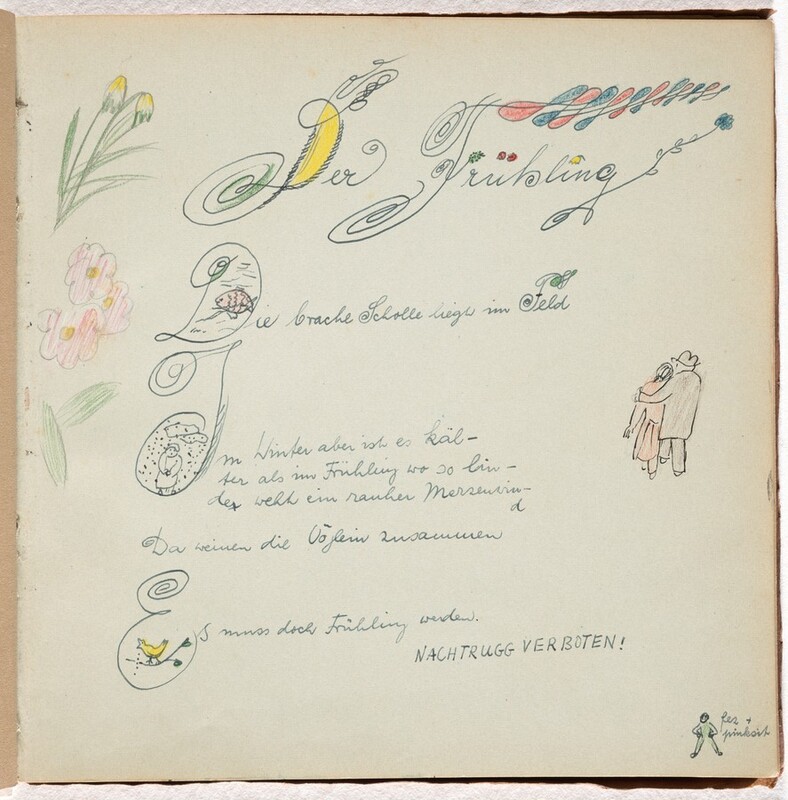 Der Frühling
Die brache Scholle liegt im Feld
Im Winter aber ist es käl-
ter als im Frühling wo so lin-
der weht ein rauher Merzenwin-
d
Da weinen die Vöglein zusammen
Es muss doch Frühling werden.
NACHTRUGG VERBOTEN!
fez +